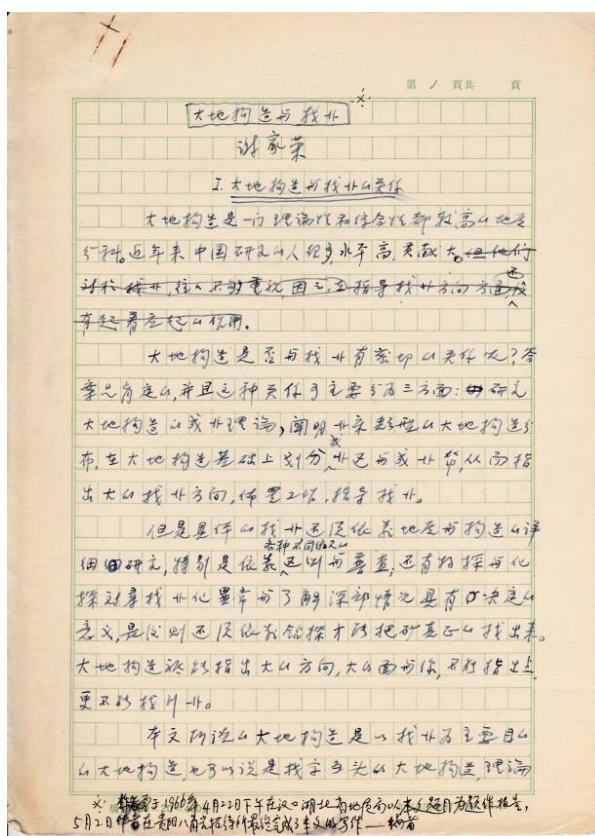 第 1 頁共 頁
大地构造与找矿
谢家荣
I. 大地构造与找矿的关系
大地构造是一门理论性和综合性都较高的地质
分科。近年来中国研究的人很多，水平高，贡献大。但他们
对于找矿，往往不够重视，因之，在指导找矿方向方面还没
有起着应起的作用。
大地构造是否与找矿有密切的关系呢？答
案是肯定的，并且这种关系可主要分为三方面：研究
大地构造的成矿理论，阐明矿床类型的大地构造分
布，在大地构造基础上划分成矿区与成矿带，从而指
出大的找矿方向，布置工作，指导找矿。
但是具体的找矿还须依靠地质与构造的详
细研究，特别是依靠各种不同的区测与普查；还有物探与化
探对寻找矿化异常与了解深部情况具有决定的
意义，是后则还须依靠钻探才能把矿真正的找出来。
大地构造只能指出大的方向，大的面与保，不能指出点，
更不能找到矿。
本文所论的大地构造是以找矿为主要目的
的大地构造，也可以说是找字当头的大地构造，理论
于1966年4月22日下午在汉口湖北省地质局以本文题目为题作报告，
5月2日作者在贵阳八角岩招待所最后完成了本文的写作——